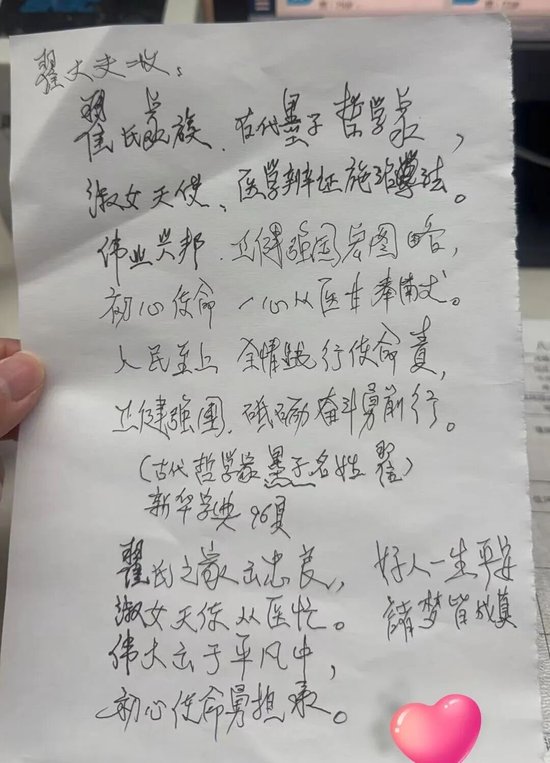 翟大夫收:
翟氏家族、古代墨子哲学家,
淑女天使、医学辨证施治学法。
伟业兴邦、卫健强国宏图略,
初心使命一心从医甘奉献
人民至上 全情践行使命责,
卫健强国、砥砺奋斗勇前行。
(古代哲学家墨子名姓翟)
新华字典 96页
翟氏之家出忠良,
淑女天使从医忙。
伟大出于平凡中,
初心使命勇担承。
好人一生平安
諸梦皆成真